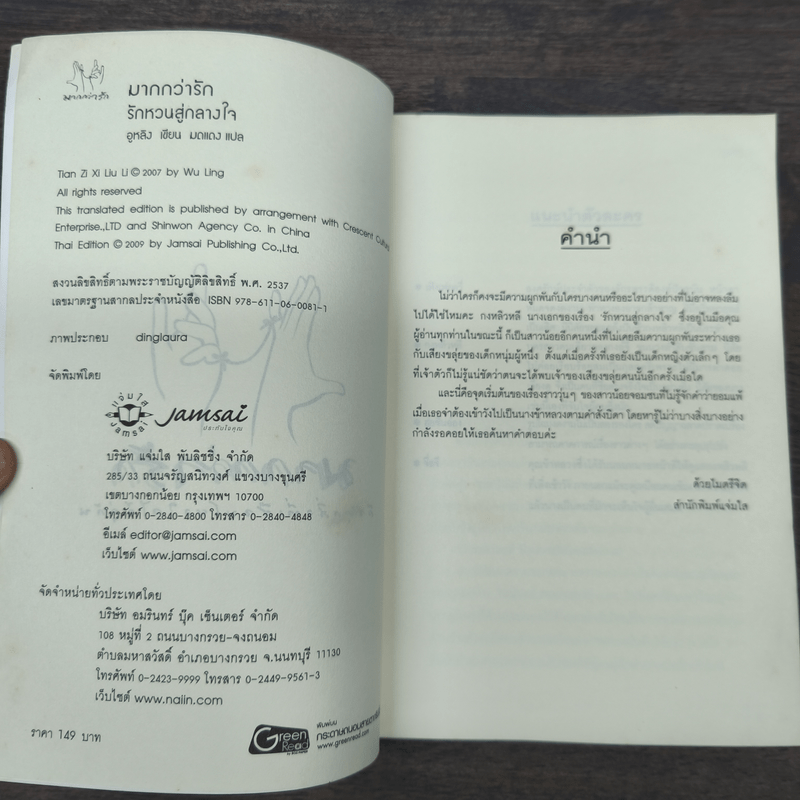 มากกว่ารัก
มากกว่ารัก
รักหวนสู่กลางใจ
อูหลิง เขียน มดแดง แปล
Tian Zi Xi Liu Li © 2007 by Wu Ling
All rights reserved
This translated edition is published by arrangement with Crescent Cultu
Enterprise.,LTD and Shinwon Agency Co. in China
Thai Edition © 2009 by Jamsai Publishing Co.,Ltd.
สงวนลิขสิทธิ์ตามพระราชบัญญัติลิขสิทธิ์ พ.ศ. 2537
เลขมาตรฐานสากลประจำหนังสือ ISBN 978-611-06-0081-1
ภาพประกอบ dinglaura
จัดพิมพ์โดย
แจ่มใส
JAMSAI
Jamsai
ประทับใจคุณ
บริษัท แจ่มใส พับลิชชิ่ง จำกัด
285/33 ถนนจรัญสนิทวงศ์ แขวงบางขุนศรี
เขตบางกอกน้อย กรุงเทพฯ 10700
โทรศัพท์ 0-2840-4800 โทรสาร 0-2840-4848
อีเมล์ editor@jamsai.com
เว็บไซต์ www.jamsai.com
จัดจำหน่ายทั่วประเทศโดย
บริษัท อมรินทร์ บุ๊ค เซ็นเตอร์ จำกัด
108 หมู่ที่ 2 ถนนบางกรวย-จงถนอม
ตำบลมหาสวัสดิ์ อำเภอบางกรวย จ.นนทบุรี 11130
โทรศัพท์ 0-2423-9999 โทรสาร 0-2449-9561-3
เว็บไซต์ www.naiin.com
ราคา 149 บาท
Green Read
พิมพ์บน
กระดาษถนอมสายตา
www.greenread.com
คำนำ
ไม่ว่าใครก็คงจะมีความผูกพันกับใครบางคนหรืออะไรบางอย่างที่ไม่อาจหลงลืม
ไปได้ใช่ไหมคะ กงหลิวหลี นางเอกของเรื่อง 'รักหวนสู่กลางใจ' ซึ่งอยู่ในมือคุณ
ผู้อ่านทุกท่านในขณะนี้ ก็เป็นสาวน้อยอีกคนหนึ่งที่ไม่เคยลืมความผูกพันระหว่างเธอ
กับเสียงขลุ่ยของเด็กหนุ่มผู้หนึ่ง ตั้งแต่เมื่อครั้งที่เธอยังเป็นเด็กหญิงตัวเล็กๆ โดย
ที่เจ้าตัวก็ไม่รู้แน่ชัดว่าตนจะได้พบเจ้าของเสียงขลุ่ยคนนั้นอีกครั้งเมื่อใด
และนี่คือจุดเริ่มต้นของเรื่องราววุ่นๆ ของสาวน้อยจอมซนที่ไม่รู้จักคำว่ายอมแพ้
เมื่อเธอจำต้องเข้าวังไปเป็นนางข้าหลวงตามคำสั่งบิดา โดยหารู้ไม่ว่าบางสิ่งบางอย่าง
กำลังรอคอยให้เธอค้นหาคำตอบค่ะ
ด้วยไมตรีจิต
สำนักพิมพ์แจ่มใส